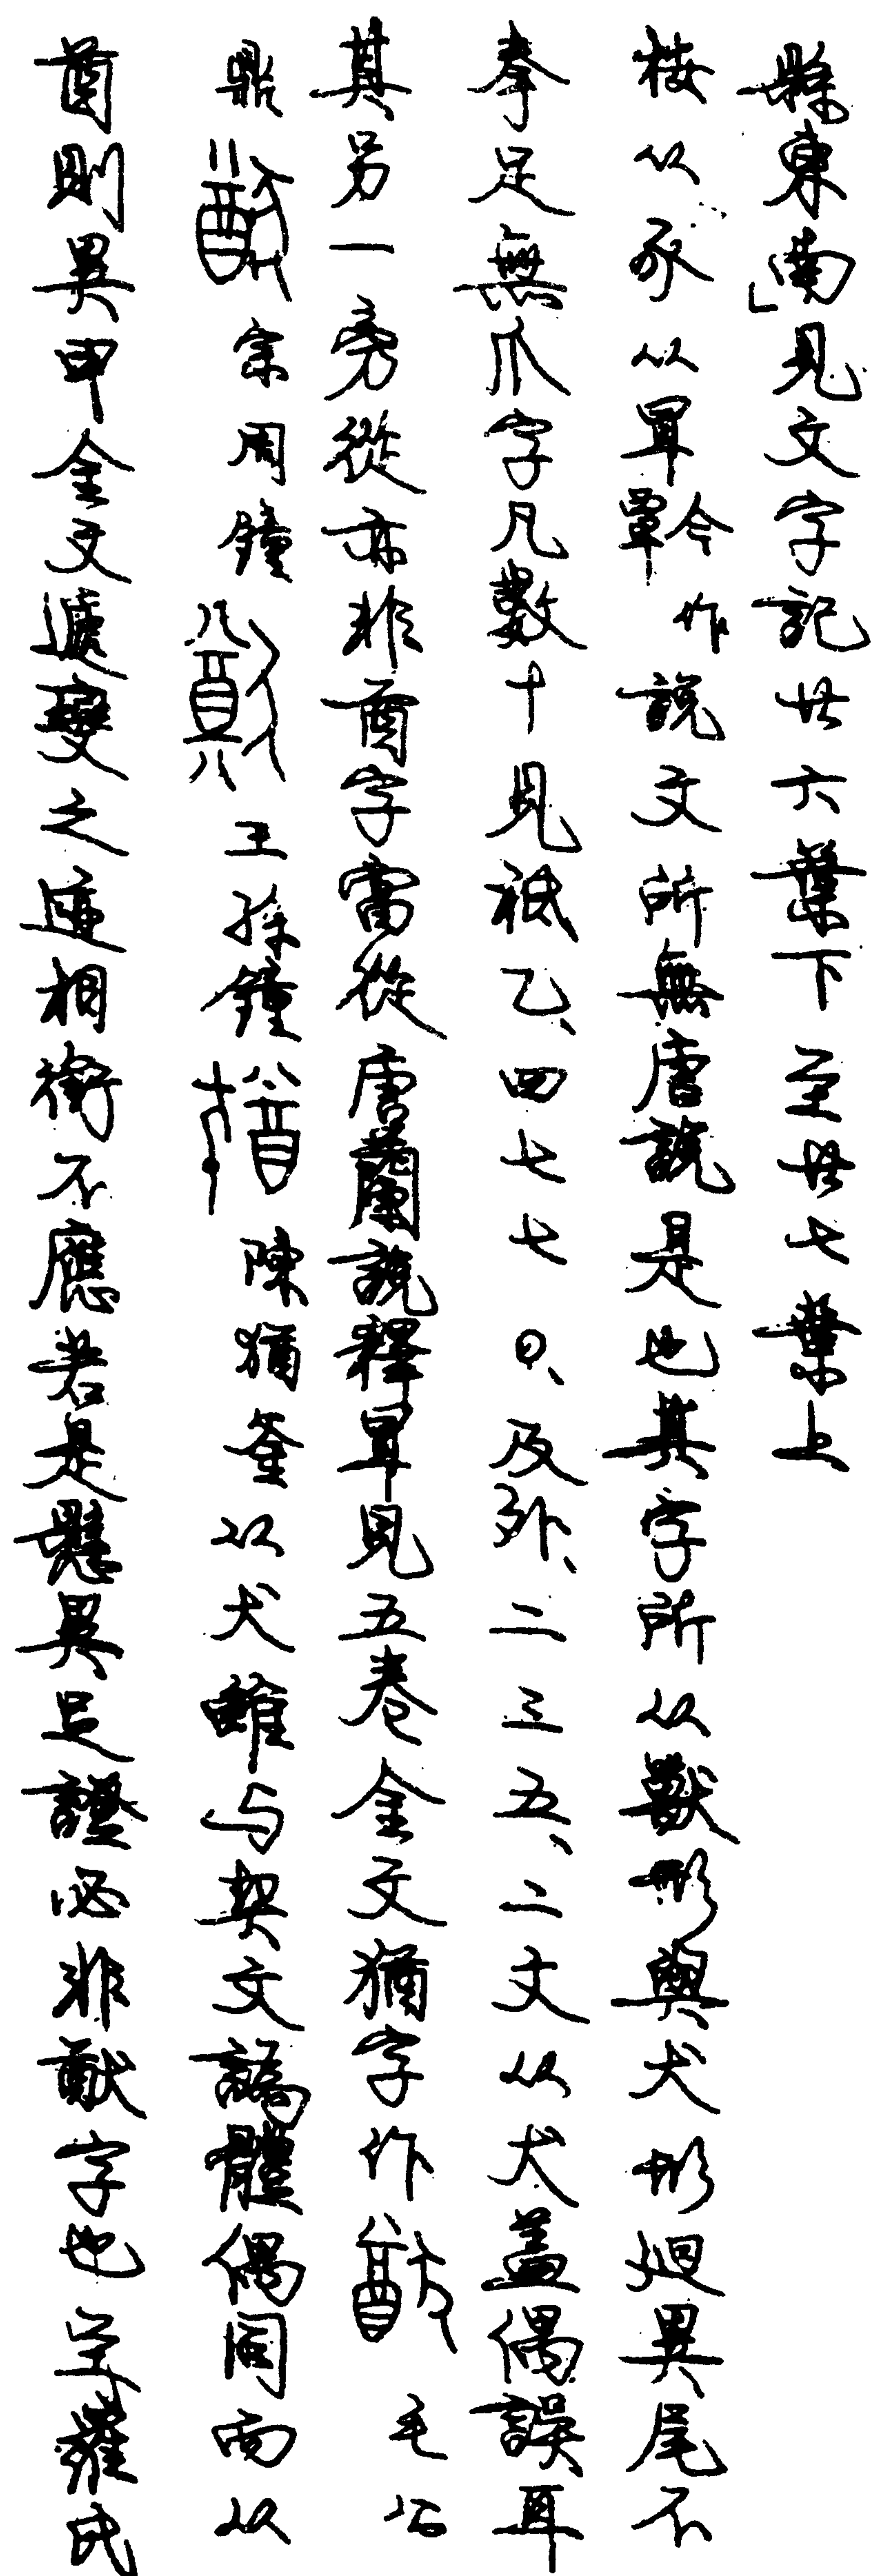 縣東南」見文字記廿六葉下至廿七葉上
按从豕从𠦪今作覃說文所無唐說是也其字所从獸形與犬形迥異尾不
拳足無爪字凡數十見祇乙、四七七〇、及外、二三五、二文从犬蓋偶誤耳
其另一旁從亦非酋字當從唐蘭說釋𠦪見五卷金文猶字作 毛公
鼎 宗周鐘 王孫鐘 陳猶釜从犬雖与契文譌體偶同而从
酋則異甲金文遞變之迹相銜不應若是懸異足證必非猷字也至羅氏